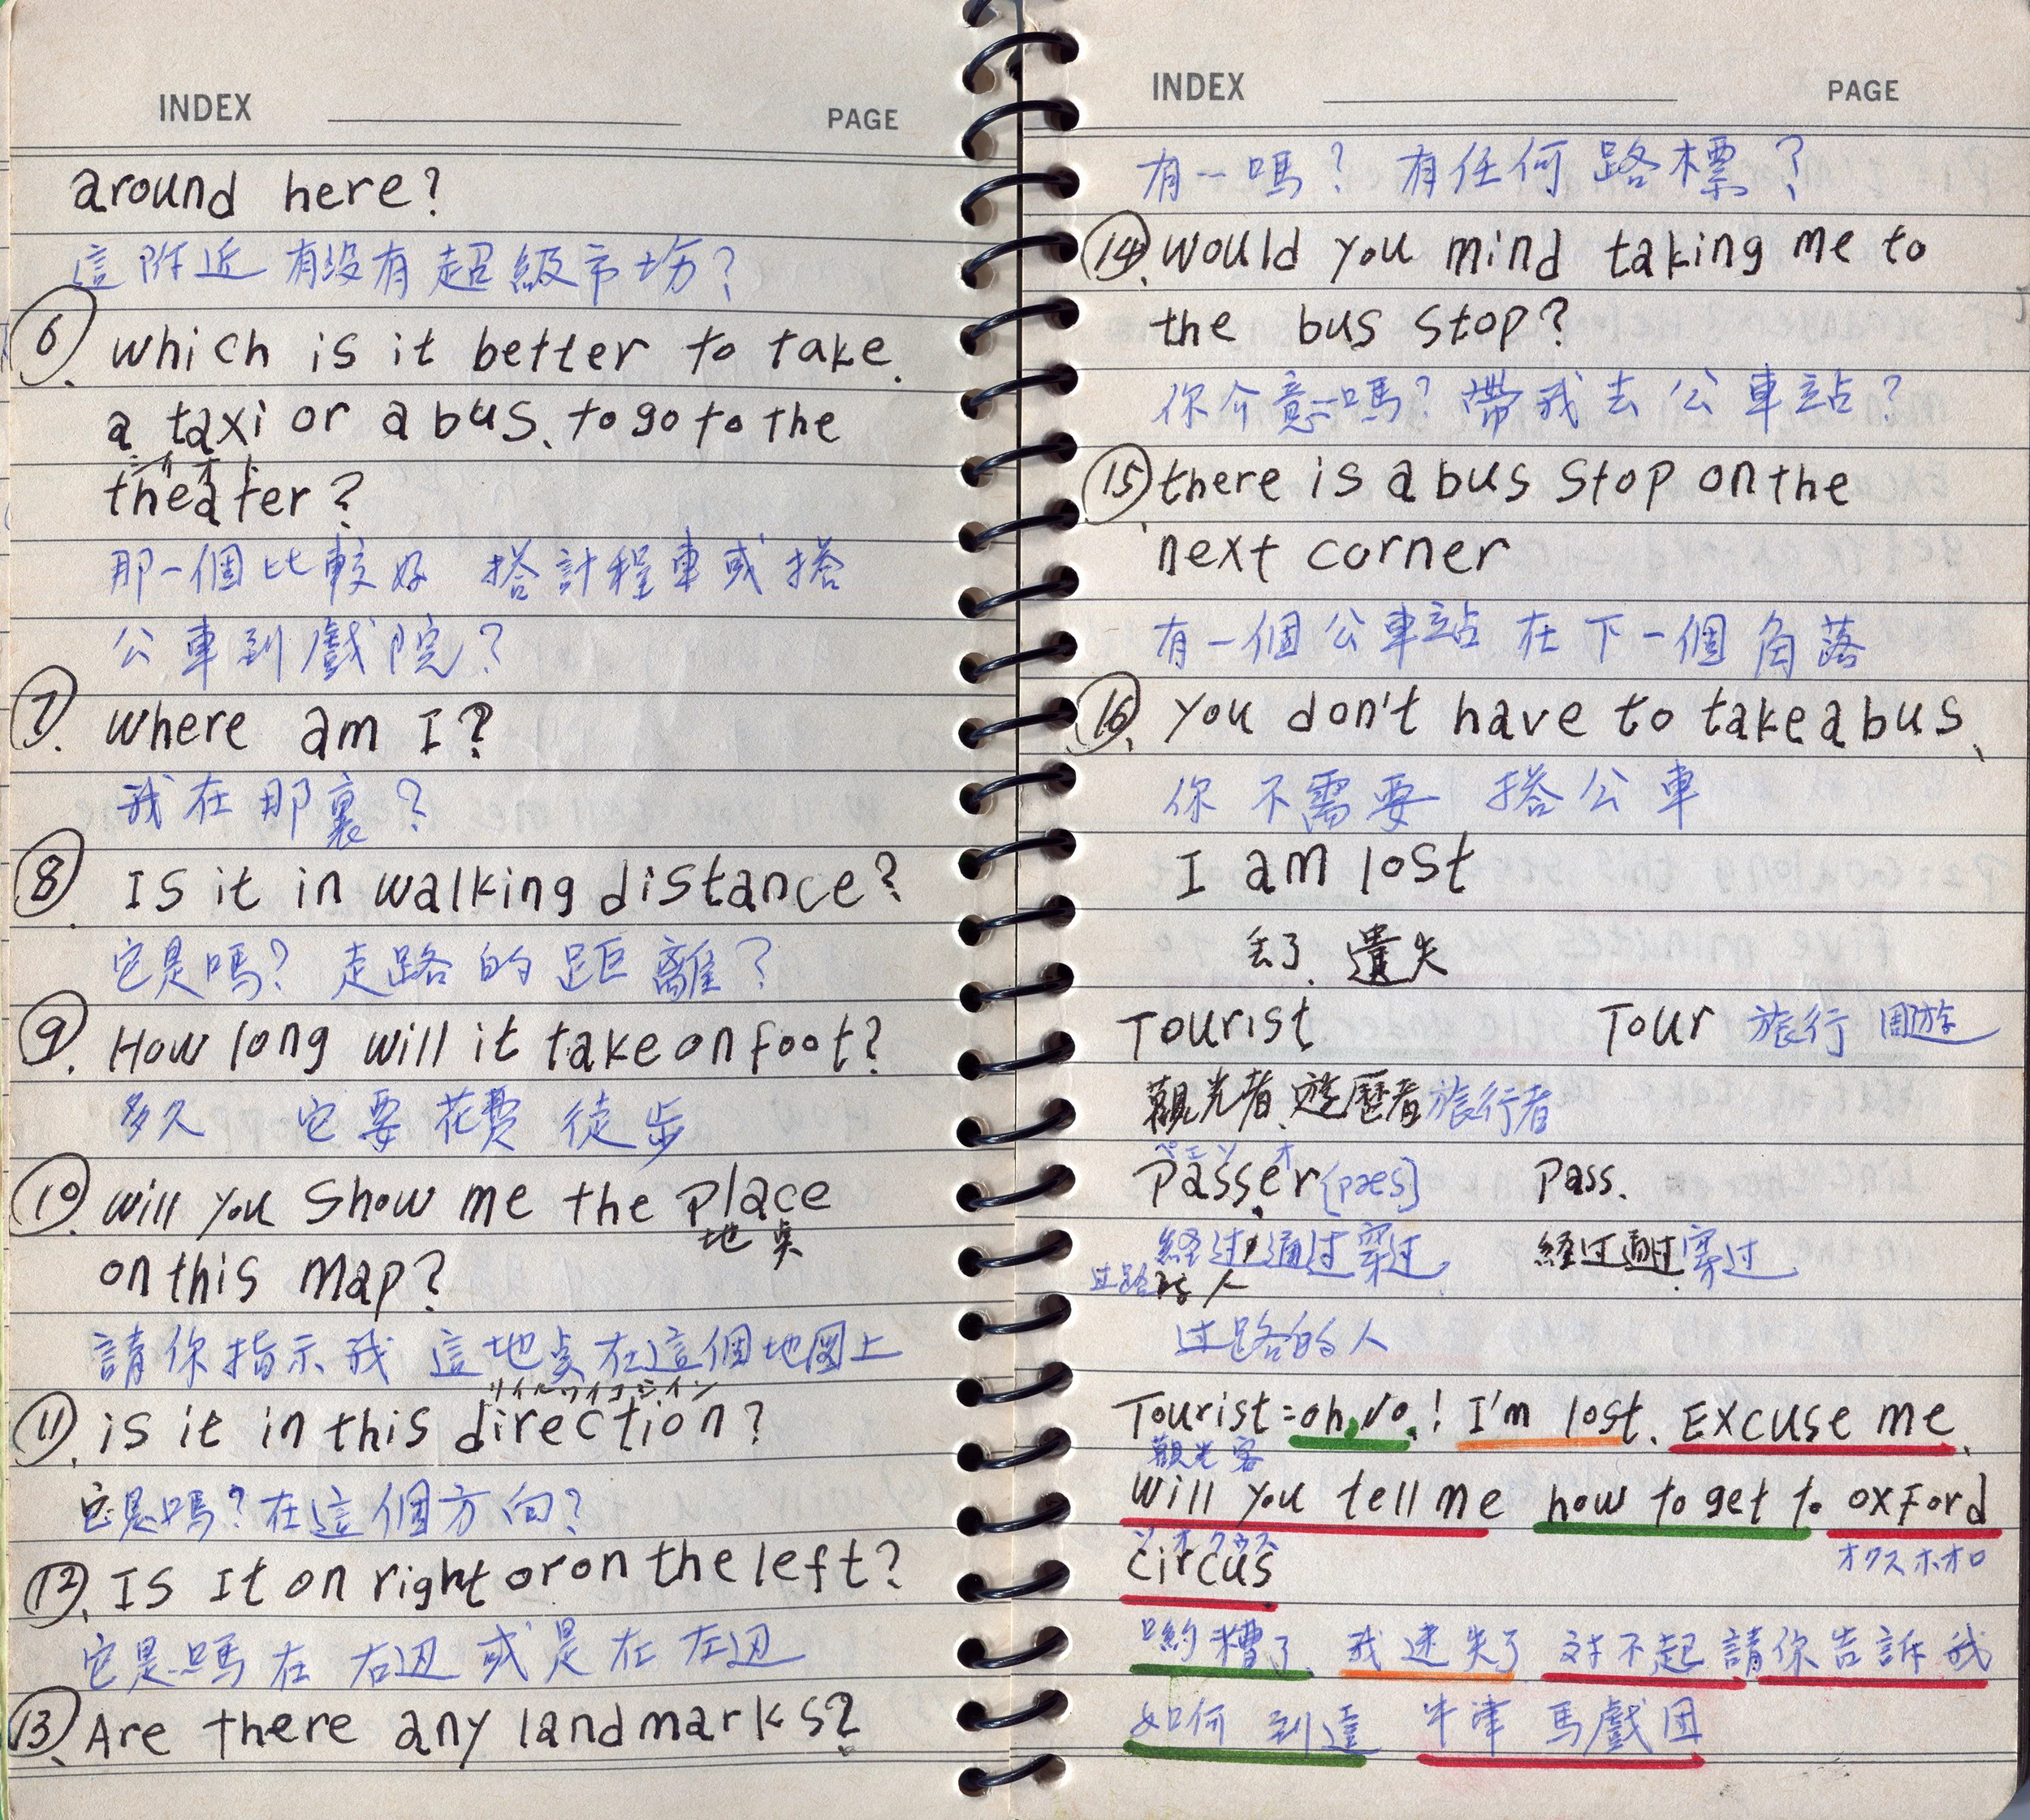 INDEX PAGE
around here?
這附近 有没有超級市场?
⑥. which is it better to take.
a taxi or a bus. to go to the
シイオト
theater?
那一個比較好 搭計程車或搭
公車到戲院?
⑦. where am I?
我在那裏?
⑧. Is it in walking distance?
它是嗎? 走路的距離?
⑨. How long will it take on foot?
多久 它要花費徒步
⑩. will you show me the place
地点
on this map?
請你指示我 這地点在這個地図上
⑪. is it in this direction?
它是嗎?在這個方向?
⑫. Is It on right or on the left?
它是嗎在 右辺 或是在 左辺
⑬. Are there any landmarks?
INDEX PAGE
有一嗎? 有任何路標?
⑭. would you mind taking me to
the bus stop?
你介意嗎? 帶我去公車站?
⑮. there is a bus stop on the
next corner
有一個公車站在下一個角落
⑯. you don't have to take a bus.
你不需要 搭公車
I am lost
丢了. 遺失
Tourist Tour 旅行 周遊
觀光者、遊歷者 旅行者
passer [pæs] pass.
経过 通过 穿过 経过 通过 穿过
过路的人
过路的人
Tourist = oh, No! I'm lost. Excuse me.
觀光客
will you tell me how to get to oxford
circus
オクスホオロ
喲糟了. 我迷失了 対不起 請你告訴我
如何 到達 牛津 馬戲団